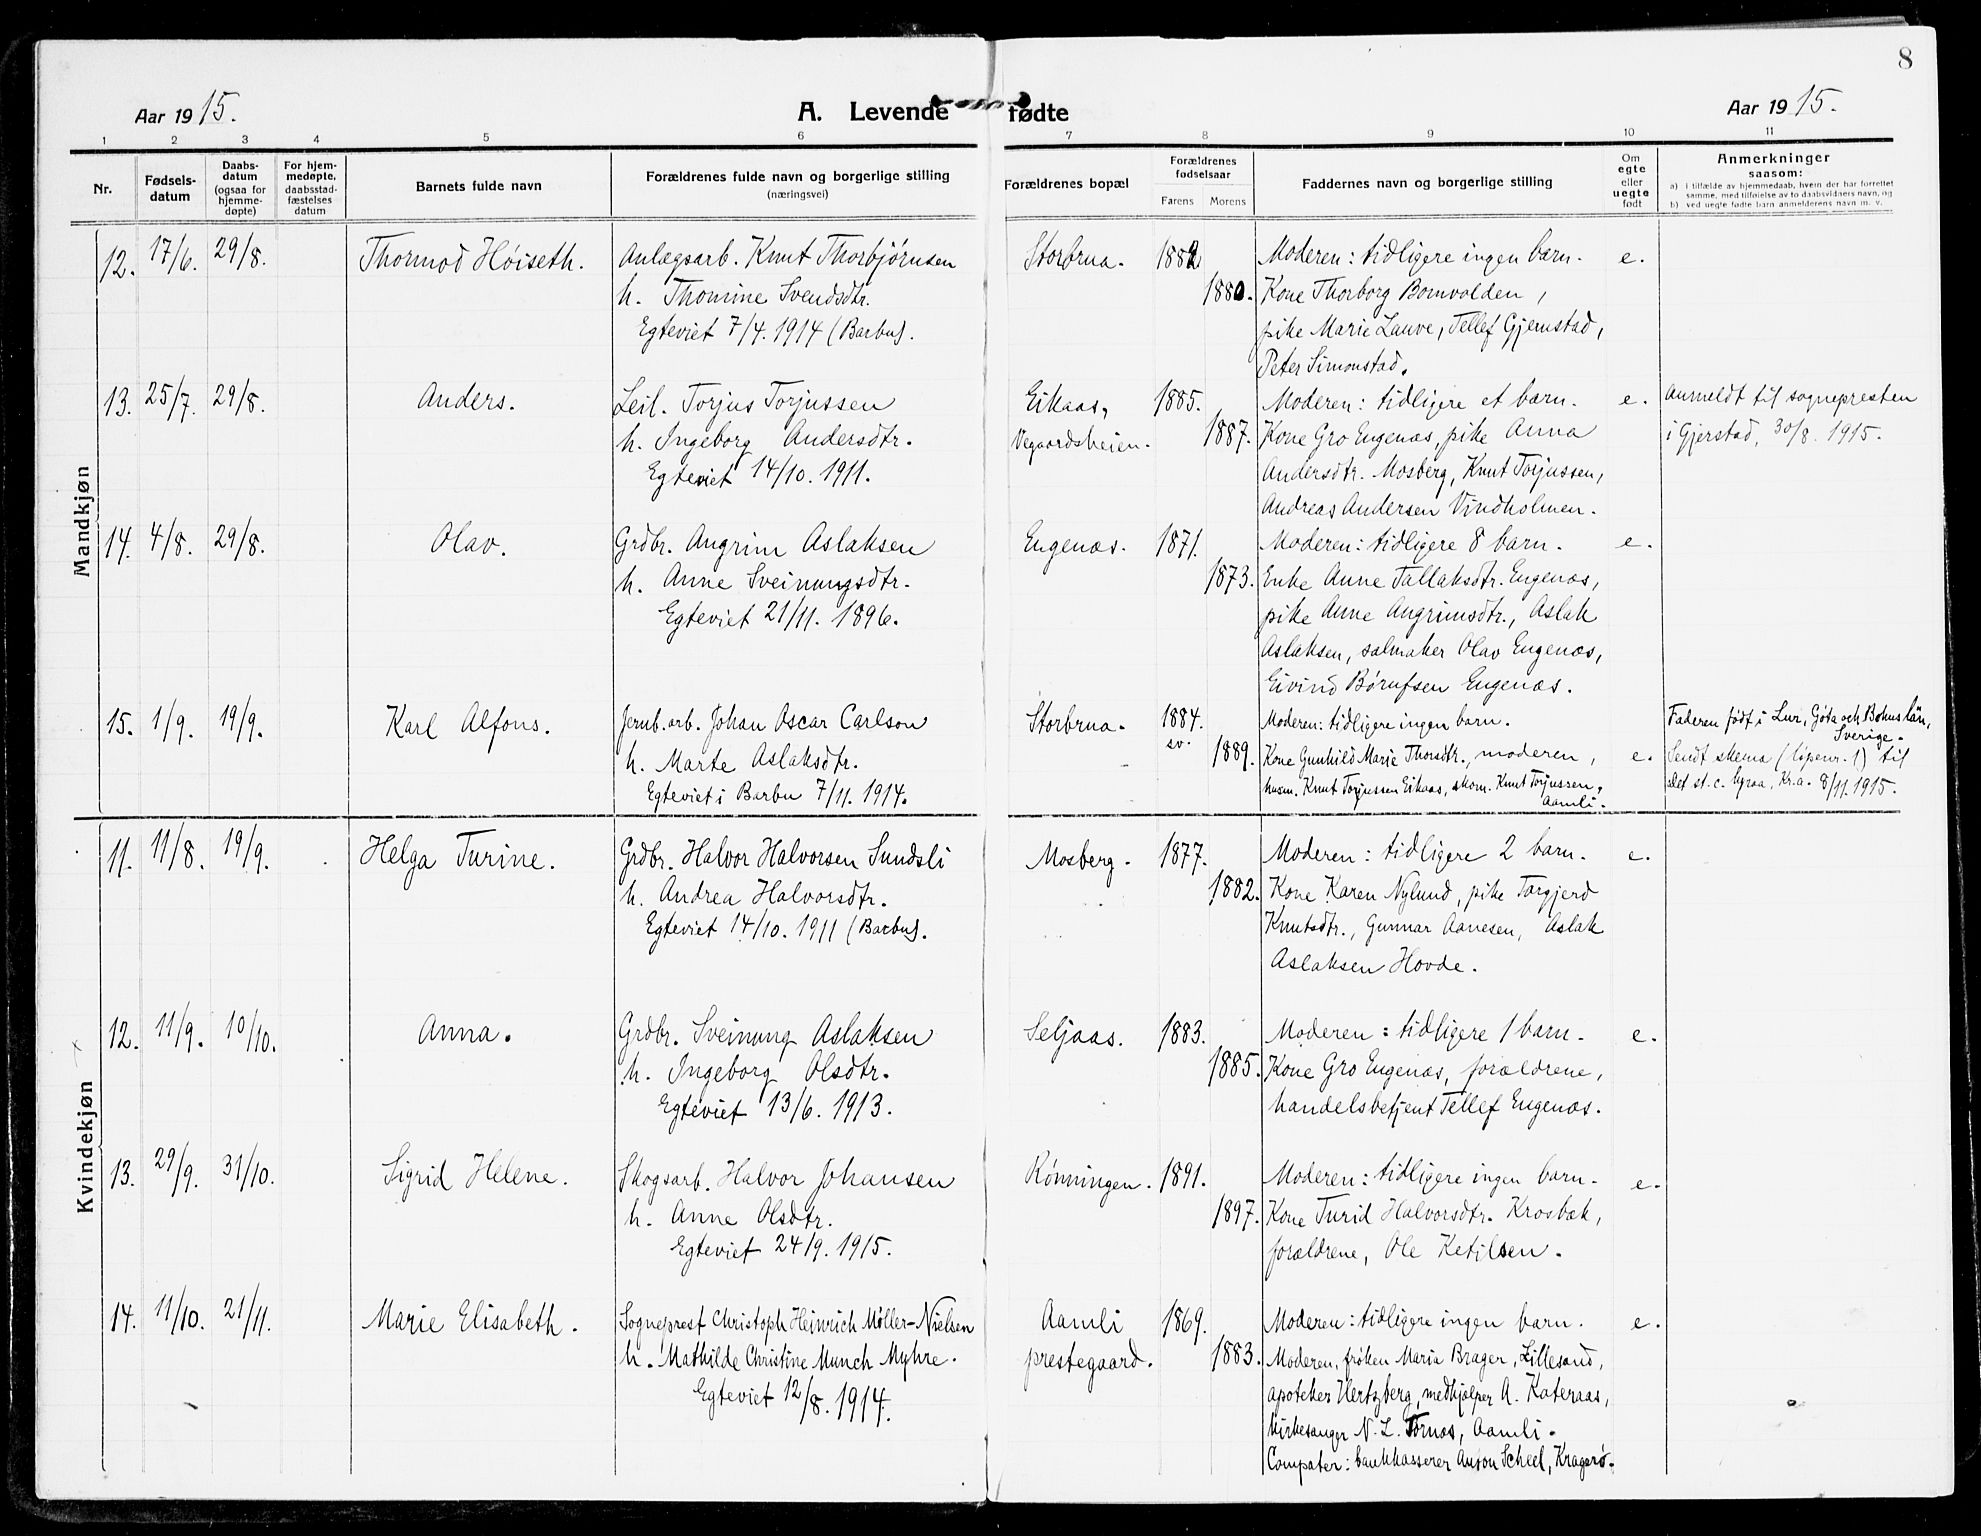 8
Aar 1915.
A. Levende fødte
Aar 1915.
1 2 3 4 5 6 7 8 9 10 11
Nr.
Fødsels-
datum
Daabs-
datum
(ogsaa for
hjemme-
døpte)
For hjem-
medøpte,
daabsstad-
fæstelses
datum
Barnets fulde navn
Forældrenes fulde navn og borgerlige stilling
(næringsvei)
Forældrenes bopæl
Forældrenes
fødselsaar
Farens Morens
Faddernes navn og borgerlige stilling
Om
egte
eller
uegte
født
Anmerkninger
saasom:
a) i tilfælde av hjemmedaab, hvem der har forrettet
samme, med tilføielse av to daabsvidners navn, og
b) ved uegte fødte barn anmelderens navn m. v.
Mandkjøn
12. 17/6. 29/8. Thormod Høiseth.
Anlægsarb. Knut Thorbjørnsen
h. Thomine Svendsdtr.
Egteviet 7/4. 1914 (Barbu).
Storbrua. 1882
1880.
Moderen: tidligere ingen barn. e.
Kone Thorborg Bomvolden,
pike Marie Lauve, Tellef Gjernstad,
Peter Simonstad.
13. 25/7. 29/8. Anders.
Leil. Torjus Torjussen
h. Ingeborg Andersdtr.
Egteviet 14/10. 1911.
Eikaas,
Vegaardsheien.
1885.
1887.
Moderen: tidligere et barn. e.
Kone Gro Engenæs, pike Anna
Andersdtr. Mosberg, Knut Torjussen,
Andreas Andersen Vindholmen.
Anmeldt til sognepresten
i Gjerstad, 30/8. 1915.
14. 4/8. 29/8. Olav.
Grdbr. Angrim Aslaksen
h. Anne Sveinungsdtr.
Egteviet 21/11. 1896.
Engenæs. 1871.
1873.
Moderen: tidligere 8 barn. e.
Enke Anne Tallaksdtr. Engenæs,
pike Anne Angrimsdtr., Aslak
Aslaksen, salmaker Olav Engenæs,
Eivind Børufsen Engenæs.
15. 1/9. 19/9. Karl Alfons.
Jernb.arb. Johan Oscar Carlson
h. Marte Aslaksdtr.
Egteviet i Barbu 7/11. 1914.
Storbrua. 1884.
sv.
1889.
Moderen: tidligere ingen barn.
Kone Gunhild Marie Thorsdtr., moderen, e.
husm. Knut Torjussen Eikaas, skom. Knut Torjussen,
Aamli.
Faderen født i Lur, Göta och Bohus län,
Sverige.
Sendt skema (løpenr. 1) til
det st. c. byraa, Kr.a. 8/11. 1915.
Kvindekjøn
11. 11/8. 19/9. Helga Turine.
Grdbr. Halvor Halvorsen Sundsli
h. Andrea Halvorsdtr.
Egteviet 14/10. 1911 (Barbu).
Mosberg. 1877.
1882.
Moderen: tidligere 2 barn. e.
Kone Karen Nylund, pike Torgjerd
Knutsdtr., Gunnar Aanesen, Aslak
Aslaksen Hovde.
12. 11/9. 10/10. Anna.
Grdbr. Sveinung Aslaksen
h. Ingeborg Olsdtr.
Egteviet 13/6. 1913.
Seljaas. 1883.
1885.
Moderen: tidligere 1 barn. e.
Kone Gro Engenæs, forældrene,
handelsbetjent Tellef Engenæs.
13. 29/9. 31/10. Sigrid Helene.
Skogsarb. Halvor Johansen
h. Anne Olsdtr.
Egteviet 24/9. 1915.
Rønningen. 1891.
1897.
Moderen: tidligere ingen barn. e.
Kone Turid Halvorsdtr. Krosbæk,
forældrene, Ole Ketilsen.
14. 11/10. 21/11. Marie Elisabeth.
Sogneprest Christoph Heinrich Møller-Nielsen
h. Mathilde Christine Munch Myhre.
Egteviet 12/8. 1914.
Aamli
prestegaard.
1869.
1883.
Moderen: tidligere ingen barn. e.
Moderen, frøken Maria Brager, Lillesand,
apoteker Hertzberg, medhjælper A. Kateraas,
kirkesanger N. L. Tornæs, Aamli.
Compater: bankkasserer Anton Scheel, Kragerø.